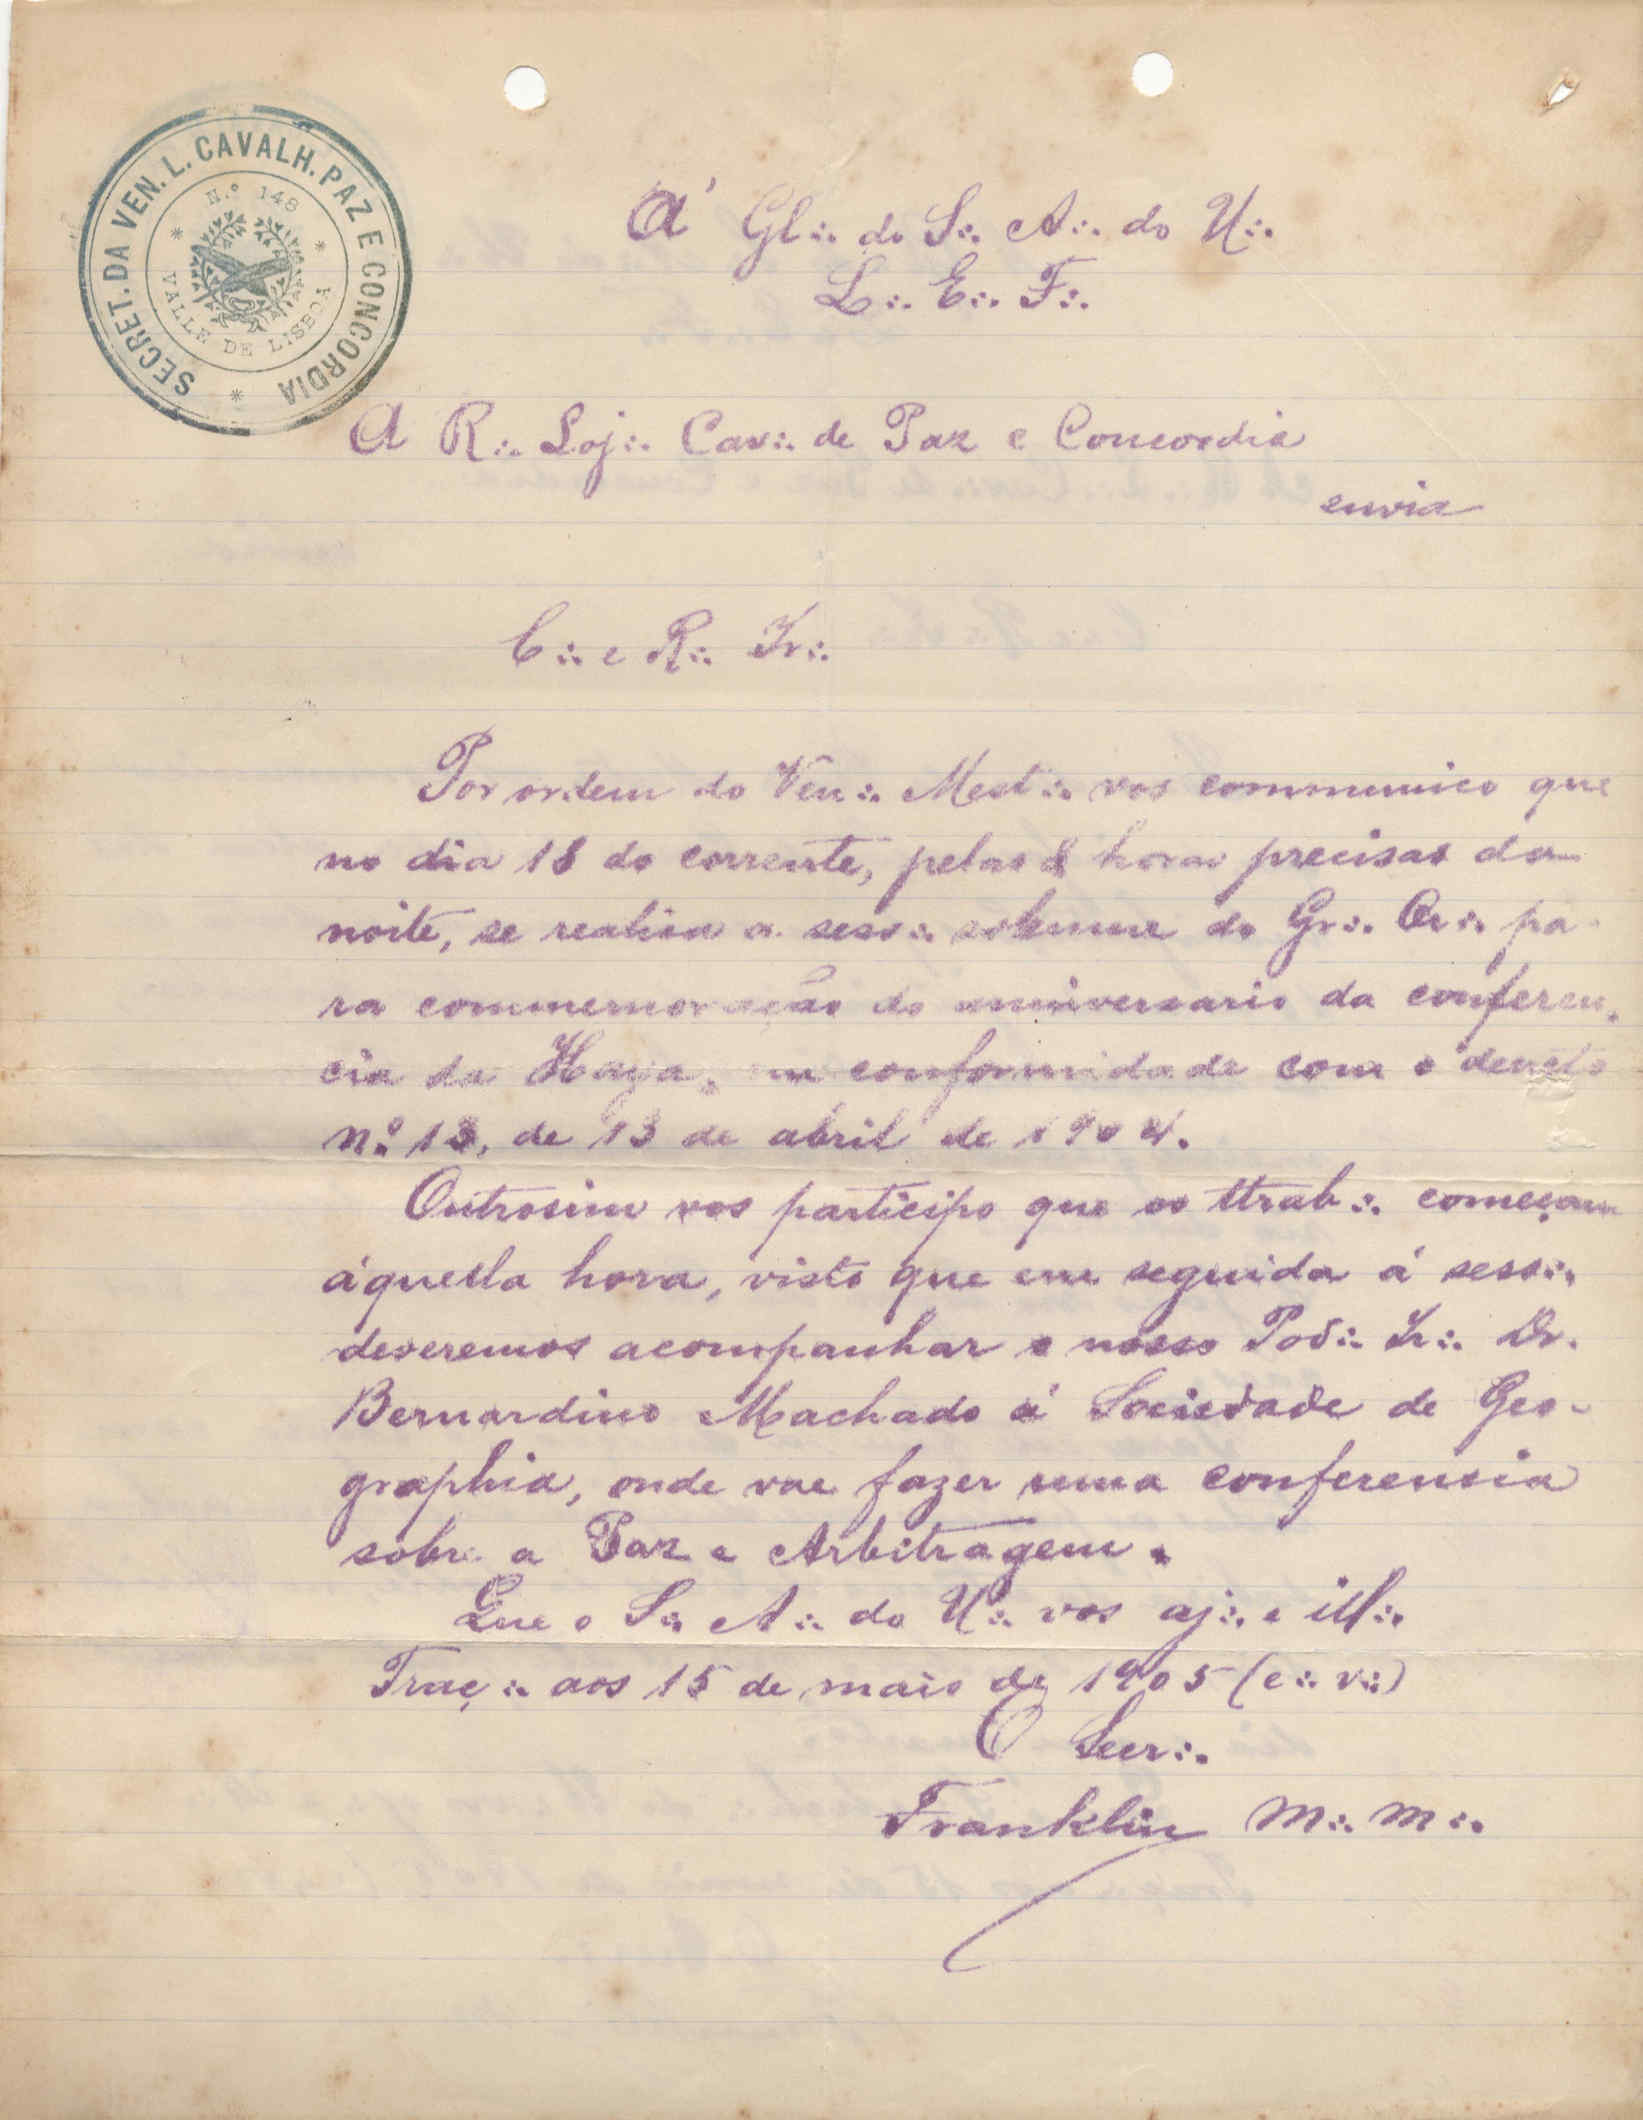 SECRET. DA VEN. L. CAVALH. PAZ E CONCORDIA
N.º 148
VALLE DE LISBOA
Á Gl∴ do S∴ A∴ do U∴
L∴ E∴ F∴
A R∴ Loj∴ Cav∴ de Paz e Concordia
envia
C∴ e R∴ Ir∴
Por ordem do Ven∴ Mest∴ vos communico que
no dia 18 do corrente, pelas 8 horas precisas da
noite, se realisa a sess∴ solemne do Gr∴ Or∴ pa-
ra commemoração do anniversario da conferen-
cia da Haya, em conformidade com o decreto
n.º 13, de 13 de abril de 1904.
Outrosim vos participo que os ttrab∴ começam
áquella hora, visto que em seguida á sess∴
deveremos acompanhar o nosso Pod∴ Ir∴ Dr.
Bernardino Machado á Sociedade de Geo-
graphia, onde vae fazer uma conferencia
sobre a Paz e Arbitragem.
Que o S∴ A∴ do U∴ vos aj∴ e ill∴
Traç∴ aos 15 de maio de 1905 (e∴ v∴)
O Secr∴
Franklin M∴ M∴